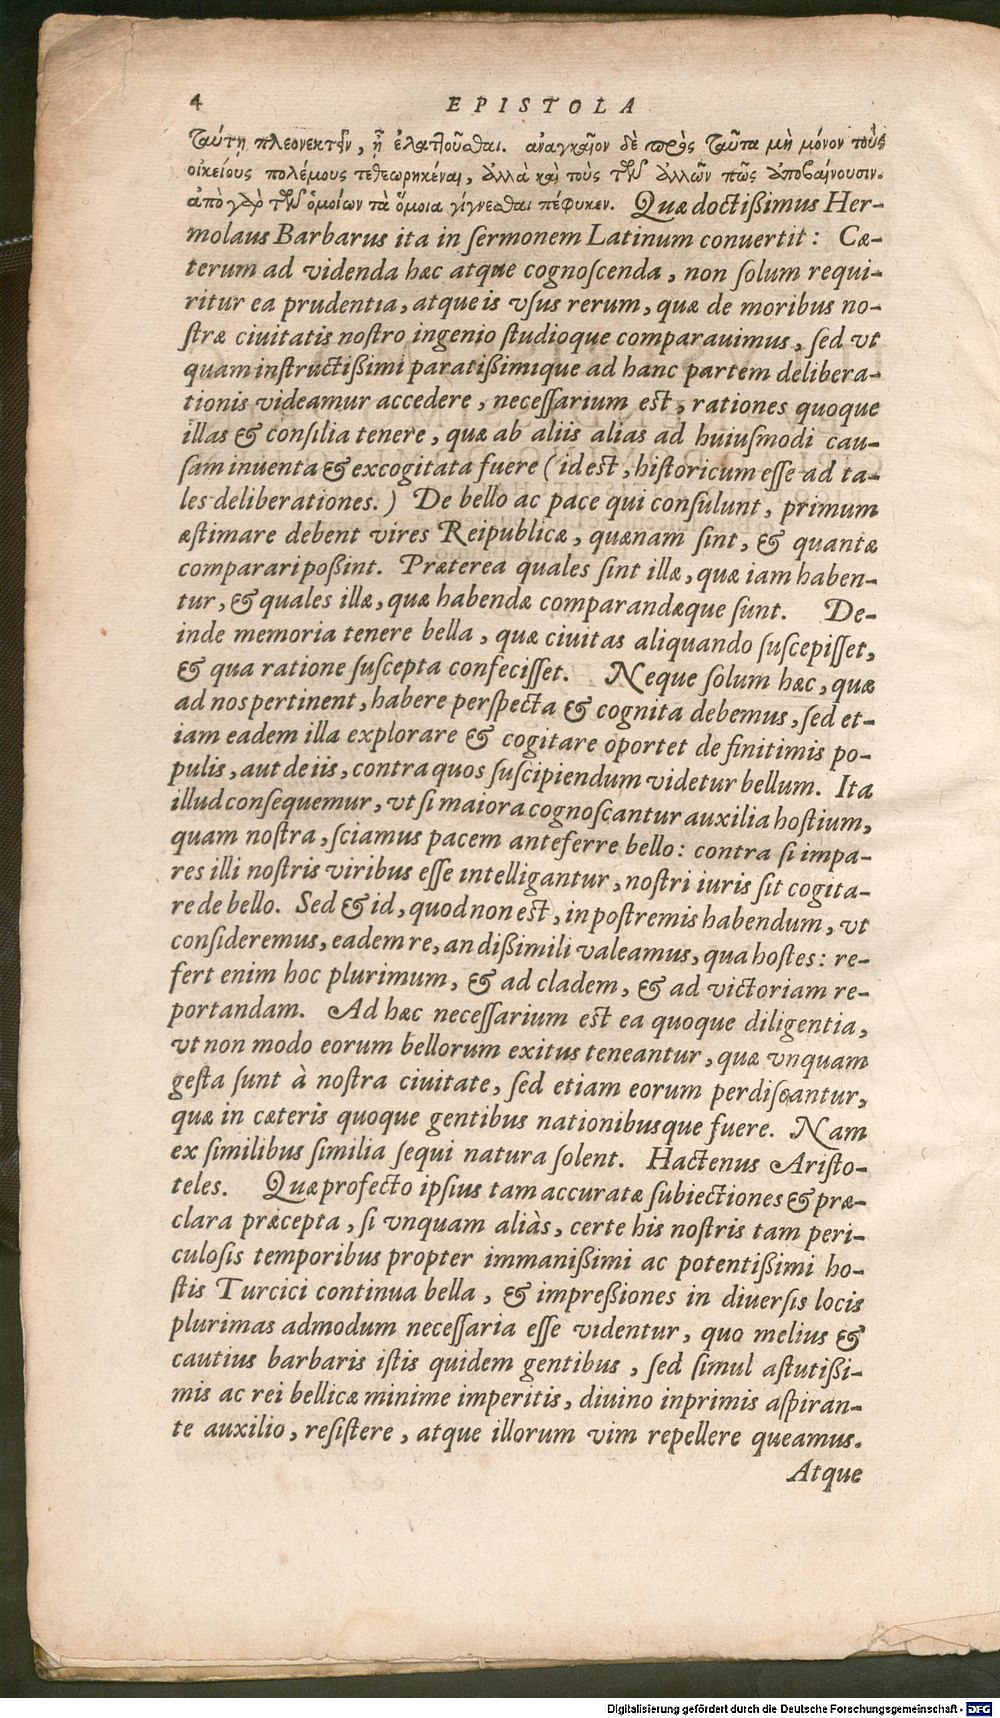 4 EPISTOLA
ταύτῃ πλεονεκτεῖν, ἢ ἐλαττοῦσθαι. ἀναγκαῖον δὲ πρὸς ταῦτα μὴ μόνον τοὺς
οἰκείους πολέμους τεθεωρηκέναι, ἀλλὰ καὶ τοὺς τῶν ἄλλων πῶς ἀποβαίνουσιν.
ἀπὸ γὰρ τῶν ὁμοίων τὰ ὅμοια γίγνεσθαι πέφυκεν. Quæ doctißimus Her-
molaus Barbarus ita in ſermonem Latinum conuertit: Cæ-
terum ad videnda hæc atque cognoſcenda, non ſolum requi-
ritur ea prudentia, atque is vſus rerum, quæ de moribus no-
ſtræ ciuitatis noſtro ingenio ſtudioque comparauimus, ſed vt
quam inſtructißimi paratißimique ad hanc partem delibera-
tionis videamur accedere, neceſſarium est, rationes quoque
illas & conſilia tenere, quæ ab aliis alias ad huiuſmodi cau-
ſam inuenta & excogitata fuere (id est, hiſtoricum eſſe ad ta-
les deliberationes.) De bello ac pace qui conſulunt, primum
æſtimare debent vires Reipublicæ, quænam ſint, & quantæ
comparari poßint. Præterea quales ſint illæ, quæ iam haben-
tur, & quales illæ, quæ habendæ comparandæque ſunt. De-
inde memoria tenere bella, quæ ciuitas aliquando ſuſcepiſſet,
& qua ratione ſuſcepta confeciſſet. Neque ſolum hæc, quæ
ad nos pertinent, habere perſpecta & cognita debemus, ſed et-
iam eadem illa explorare & cogitare oportet de finitimis po-
pulis, aut de iis, contra quos ſuſcipiendum videtur bellum. Ita
illud conſequemur, vt ſi maiora cognoſcantur auxilia hoſtium,
quam noſtra, ſciamus pacem anteferre bello: contra ſi impa-
res illi noſtris viribus eſſe intelligantur, noſtri iuris ſit cogita-
re de bello. Sed & id, quod non est, in poſtremis habendum, vt
conſideremus, eadem re, an dißimili valeamus, qua hoſtes: re-
fert enim hoc plurimum, & ad cladem, & ad victoriam re-
portandam. Ad hæc neceſſarium est ea quoque diligentia,
vt non modo eorum bellorum exitus teneantur, quæ vnquam
geſta ſunt à noſtra ciuitate, ſed etiam eorum perdiſcantur,
quæ in cæteris quoque gentibus nationibusque fuere. Nam
ex ſimilibus ſimilia ſequi natura ſolent. Hactenus Ariſto-
teles. Quæ profecto ipſius tam accuratæ ſubiectiones & præ-
clara præcepta, ſi vnquam aliàs, certe his noſtris tam peri-
culoſis temporibus propter immanißimi ac potentißimi ho-
ſtis Turcici continua bella, & impreßiones in diuerſis locis
plurimas admodum neceſſaria eſſe videntur, quo melius &
cautius barbaris iſtis quidem gentibus, ſed ſimul aſtutißi-
mis ac rei bellicæ minime imperitis, diuino inprimis aſpiran-
te auxilio, reſiſtere, atque illorum vim repellere queamus.
Atque
Digitalisierung gefördert durch die Deutsche Forschungsgemeinschaft - DFG